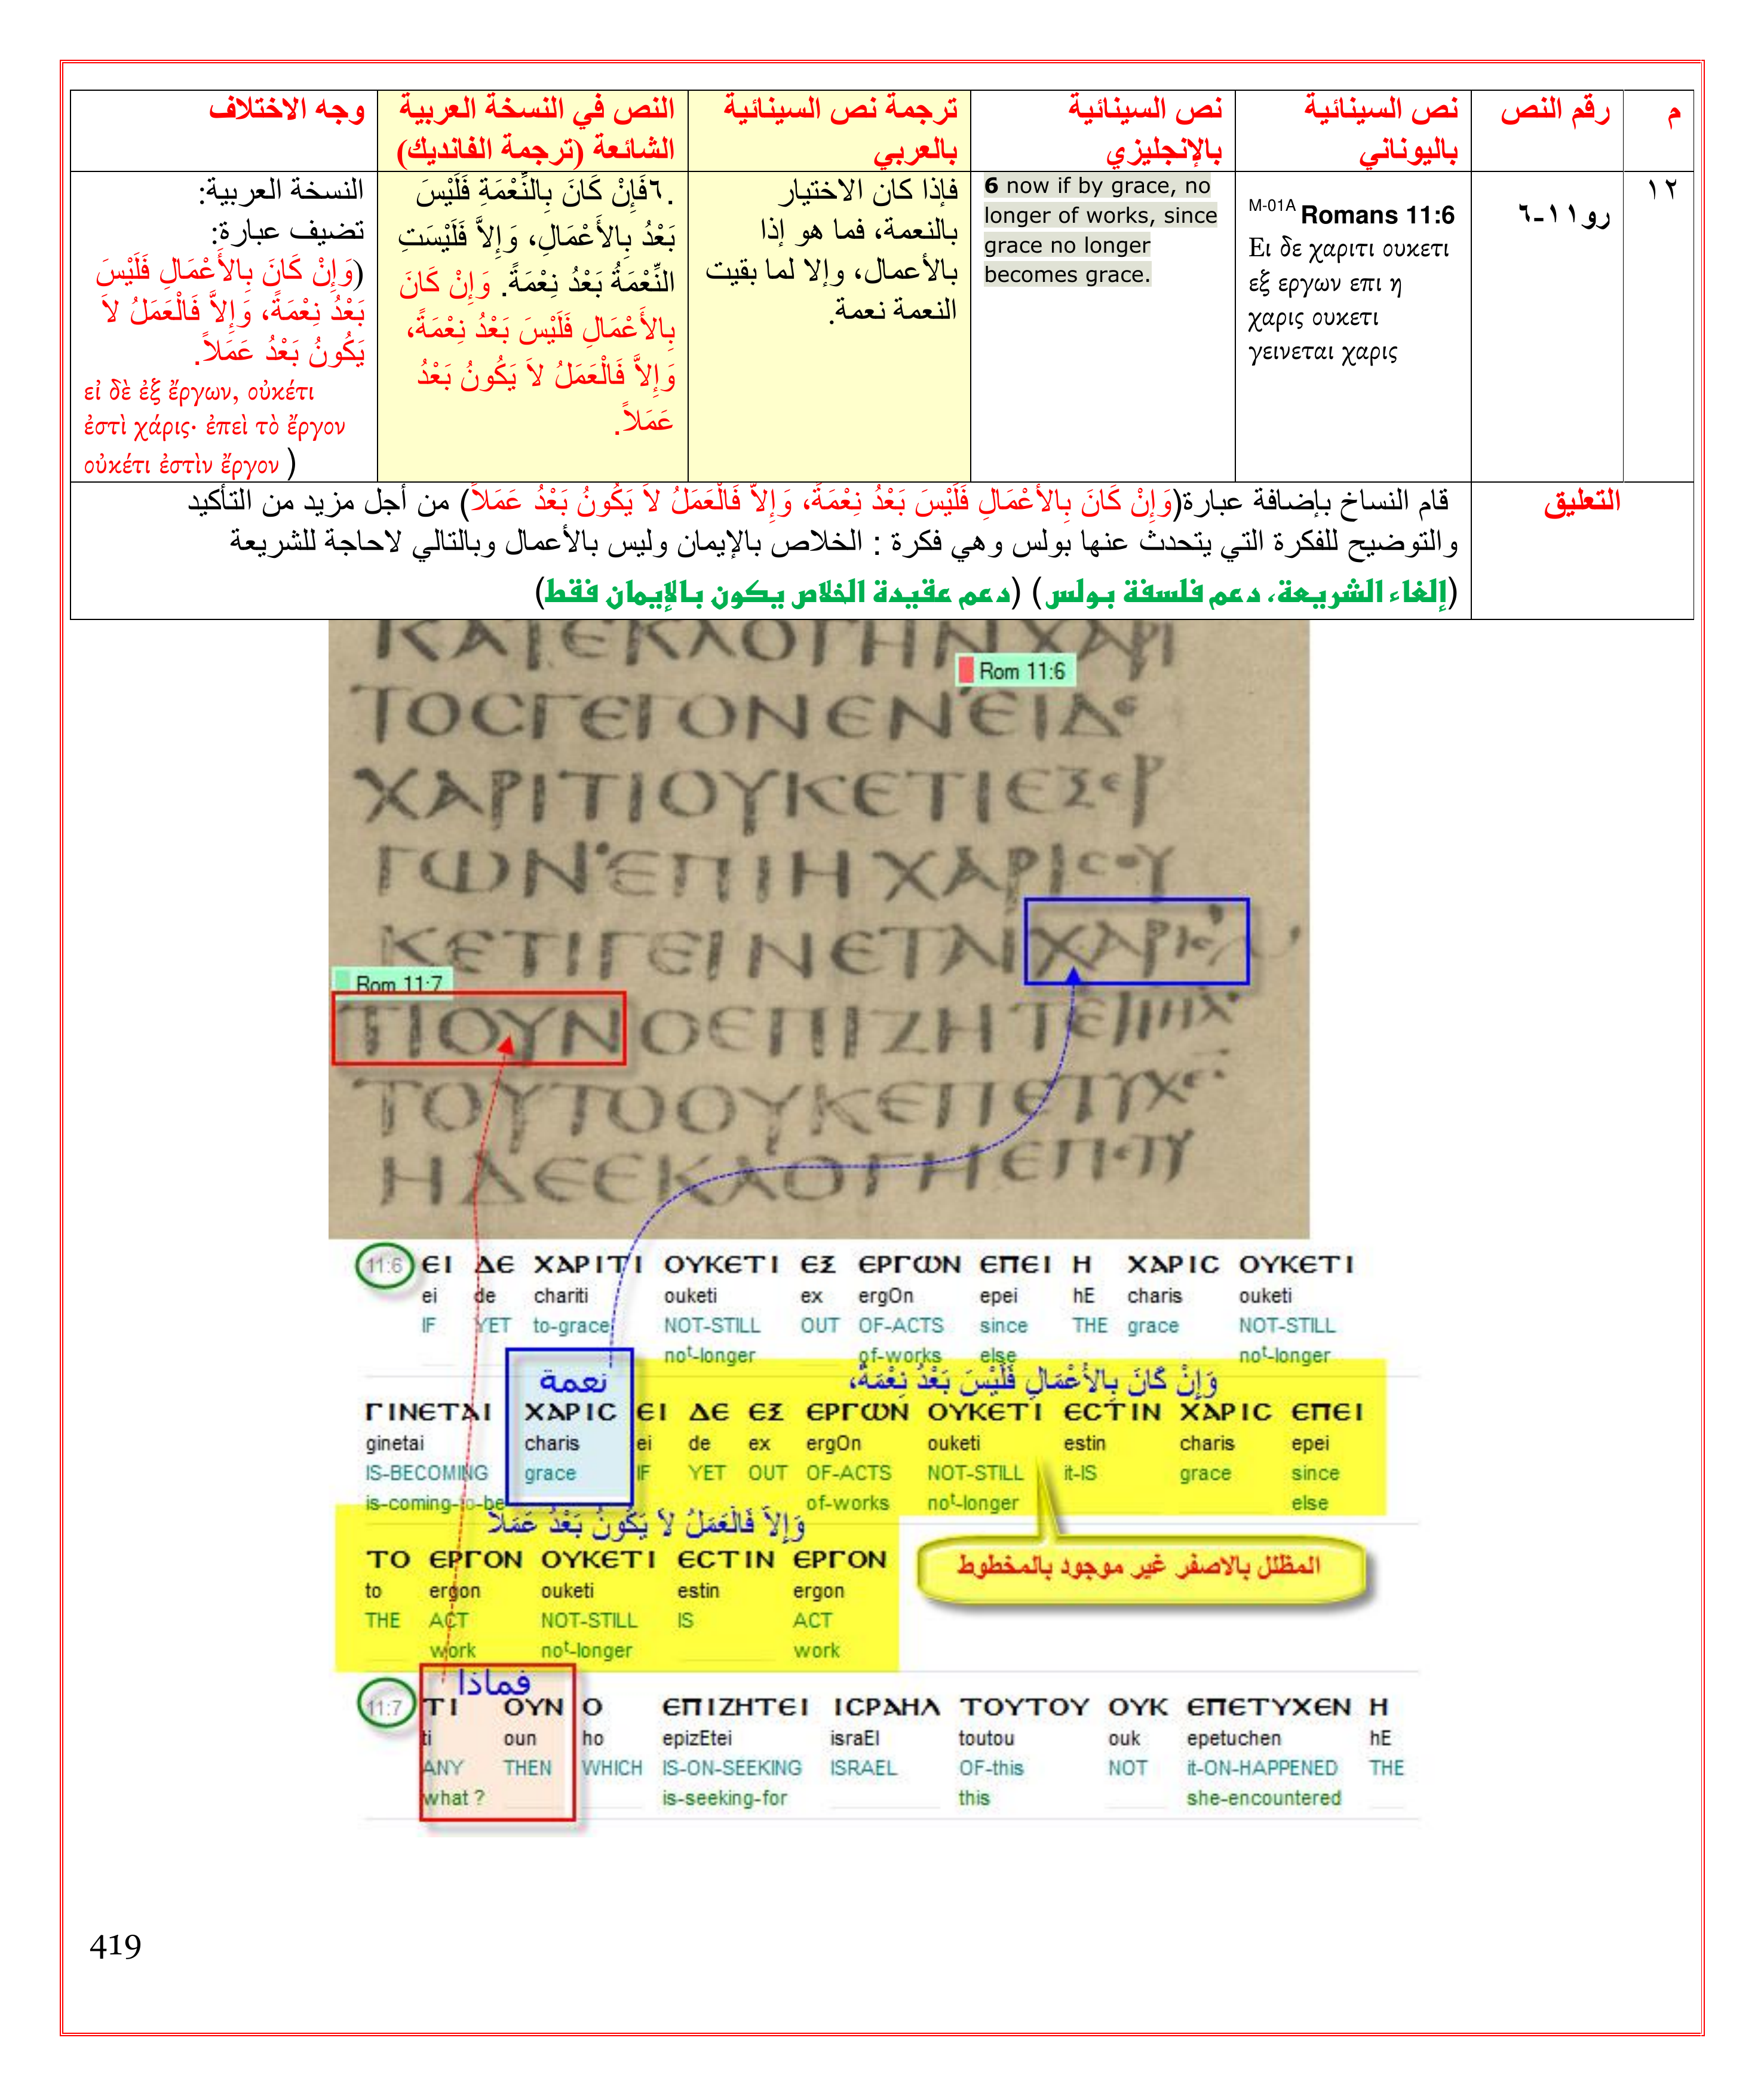 م
رقم النص
نص السينائية
باليوناني
نص السينائية
بالإنجليزي
ترجمة نص السينائية
بالعربي
النص في النسخة العربية
الشائعة (ترجمة الفانديك)
وجه الاختلاف
١٢
رو١١-٦
M-01A Romans 11:6
Ει δε χαριτι ουκετι
εξ εργων επι η
χαρις ουκετι
γεινεται χαρις
6 now if by grace, no
longer of works, since
grace no longer
becomes grace.
فإذا كان الاختيار
بالنعمة، فما هو إذا
بالأعمال، وإلا لما بقيت
النعمة نعمة.
٦.فَإِنْ كَانَ بِالنِّعْمَةِ فَلَيْسَ
بَعْدُ بِالأَعْمَالِ، وَإِلاَّ فَلَيْسَتِ
النِّعْمَةُ بَعْدُ نِعْمَةً. وَإِنْ كَانَ
بِالأَعْمَالِ فَلَيْسَ بَعْدُ نِعْمَةً،
وَإِلاَّ فَالْعَمَلُ لاَ يَكُونُ بَعْدُ
عَمَلاً.
النسخة العربية:
تضيف عبارة:
(وَإِنْ كَانَ بِالأَعْمَالِ فَلَيْسَ
بَعْدُ نِعْمَةً، وَإِلاَّ فَالْعَمَلُ لاَ
يَكُونُ بَعْدُ عَمَلاً.
εἰ δὲ ἐξ ἔργων, οὐκέτι
ἐστὶ χάρις· ἐπεὶ τὸ ἔργον
οὐκέτι ἐστὶν ἔργον )
التعليق
قام النساخ بإضافة عبارة(وَإِنْ كَانَ بِالأَعْمَالِ فَلَيْسَ بَعْدُ نِعْمَةً، وَإِلاَّ فَالْعَمَلُ لاَ يَكُونُ بَعْدُ عَمَلاً) من أجل مزيد من التأكيد
والتوضيح للفكرة التي يتحدث عنها بولس وهي فكرة : الخلاص بالإيمان وليس بالأعمال وبالتالي لاحاجة للشريعة
(إلغاء الشريعة، دعم فلسفة بولس) (دعم عقيدة الخلاص يكون بالإيمان فقط)
ΚΑΤΕΚΛΟΓΗΝΧΑΡΙ
Rom 11:6
ΤΟCΓΕΓΟΝΕΝΕΙΔΕ
ΧΑΡΙΤΙΟΥΚΕΤΙΕΞΕΡ
ΓΩΝΕΠΙΗΧΑΡΙCΟΥ
ΚΕΤΙΓΕΙΝΕΤΑΙΧΑΡΙC
Rom 11:7
ΤΙΟΥΝΟΕΠΙΖΗΤΕΙΙΗΛ
ΤΟΥΤΟΟΥΚΕΠΕΤΥΧΕ
ΗΔΕΕΚΛΟΓΗΕΠΕΤΥ
11:6 ΕΙ ΔΕ ΧΑΡΙΤΙ ΟΥΚΕΤΙ ΕΞ ΕΡΓΩΝ ΕΠΕΙ Η ΧΑΡΙC ΟΥΚΕΤΙ
ei de chariti ouketi ex ergOn epei hE charis ouketi
IF YET to-grace NOT-STILL OUT OF-ACTS since THE grace NOT-STILL
not-longer of-works else not-longer
نعمة وَإِنْ كَانَ بِالأَعْمَالِ فَلَيْسَ بَعْدُ نِعْمَةً،
ΓΙΝΕΤΑΙ ΧΑΡΙC ΕΙ ΔΕ ΕΞ ΕΡΓΩΝ ΟΥΚΕΤΙ ΕCΤΙΝ ΧΑΡΙC ΕΠΕΙ
ginetai charis ei de ex ergOn ouketi estin charis epei
IS-BECOMING grace IF YET OUT OF-ACTS NOT-STILL it-IS grace since
is-coming-to-be of-works not-longer else
وَإِلاَّ فَالْعَمَلُ لاَ يَكُونُ بَعْدُ عَمَلاً
ΤΟ ΕΡΓΟΝ ΟΥΚΕΤΙ ΕCΤΙΝ ΕΡΓΟΝ
to ergon ouketi estin ergon
THE ACT NOT-STILL IS ACT
work not-longer work
المظلل بالاصفر غير موجود بالمخطوط
فماذا
11:7 ΤΙ ΟΥΝ Ο ΕΠΙΖΗΤΕΙ ΙCΡΑΗΛ ΤΟΥΤΟΥ ΟΥΚ ΕΠΕΤΥΧΕΝ Η
ti oun ho epizEtei israEl toutou ouk epetuchen hE
ANY THEN WHICH IS-ON-SEEKING ISRAEL OF-this NOT it-ON-HAPPENED THE
what ? is-seeking-for this she-encountered
419